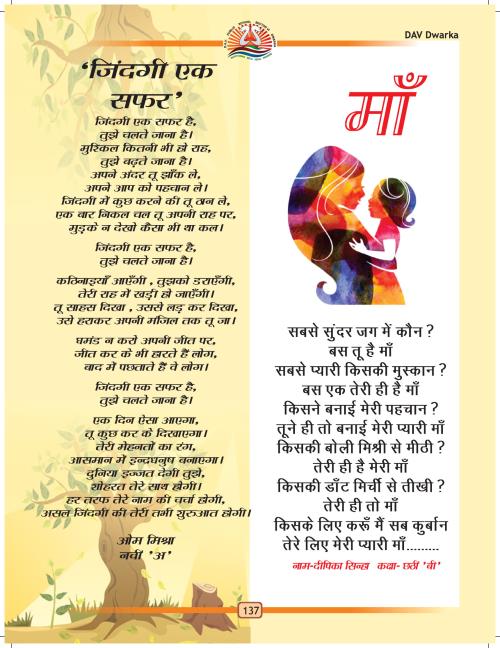 DAV Dwarka
‘ज़िंदगी एक
सफर’
ज़िंदगी एक सफर है,
तुझे चलते जाना है।
मुश्किल कितनी भी हो राह,
तुझे बढ़ते जाना है।
अपने अंदर तू झाँक ले,
अपने आप को पहचान ले।
ज़िंदगी में कुछ करने की तू ठान ले,
एक बार निकल चल तू अपनी राह पर,
मुड़के न देखो कैसा भी था कल।
ज़िंदगी एक सफर है,
तुझे चलते जाना है।
कठिनाइयाँ आएँगी , तुझको डराएँगी,
तेरी राह में खड़ी हो जाएँगी।
तू साहस दिखा , उससे लड़ कर दिखा,
उसे हराकर अपनी मंजिल तक तू जा।
घमंड न करो अपनी जीत पर,
जीत कर के भी हारते हैं लोग,
बाद में पछताते हैं वे लोग।
ज़िंदगी एक सफर है,
तुझे चलते जाना है।
एक दिन ऐसा आएगा,
तू कुछ कर के दिखाएगा।
तेरी मेहनतों का रंग,
आसमान में इन्द्रधनुष बनाएगा।
दुनिया इज्जत देगी तुझे,
शोहरत तेरे साथ होगी।
हर तरफ तेरे नाम की चर्चा होगी,
असल ज़िंदगी की तेरी तभी शुरुआत होगी।
ओम मिश्रा
नवीं 'अ'
माँ
सबसे सुंदर जग में कौन ?
बस तू है माँ
सबसे प्यारी किसकी मुस्कान ?
बस एक तेरी ही है माँ
किसने बनाई मेरी पहचान ?
तूने ही तो बनाई मेरी प्यारी माँ
किसकी बोली मिश्री से मीठी ?
तेरी ही है मेरी माँ
किसकी डाँट मिर्ची से तीखी ?
तेरी ही तो माँ
किसके लिए करूँ मैं सब कुर्बान
तेरे लिए मेरी प्यारी माँ.........
नाम-दीपिका सिन्हा कक्षा- छठी 'बी'
137